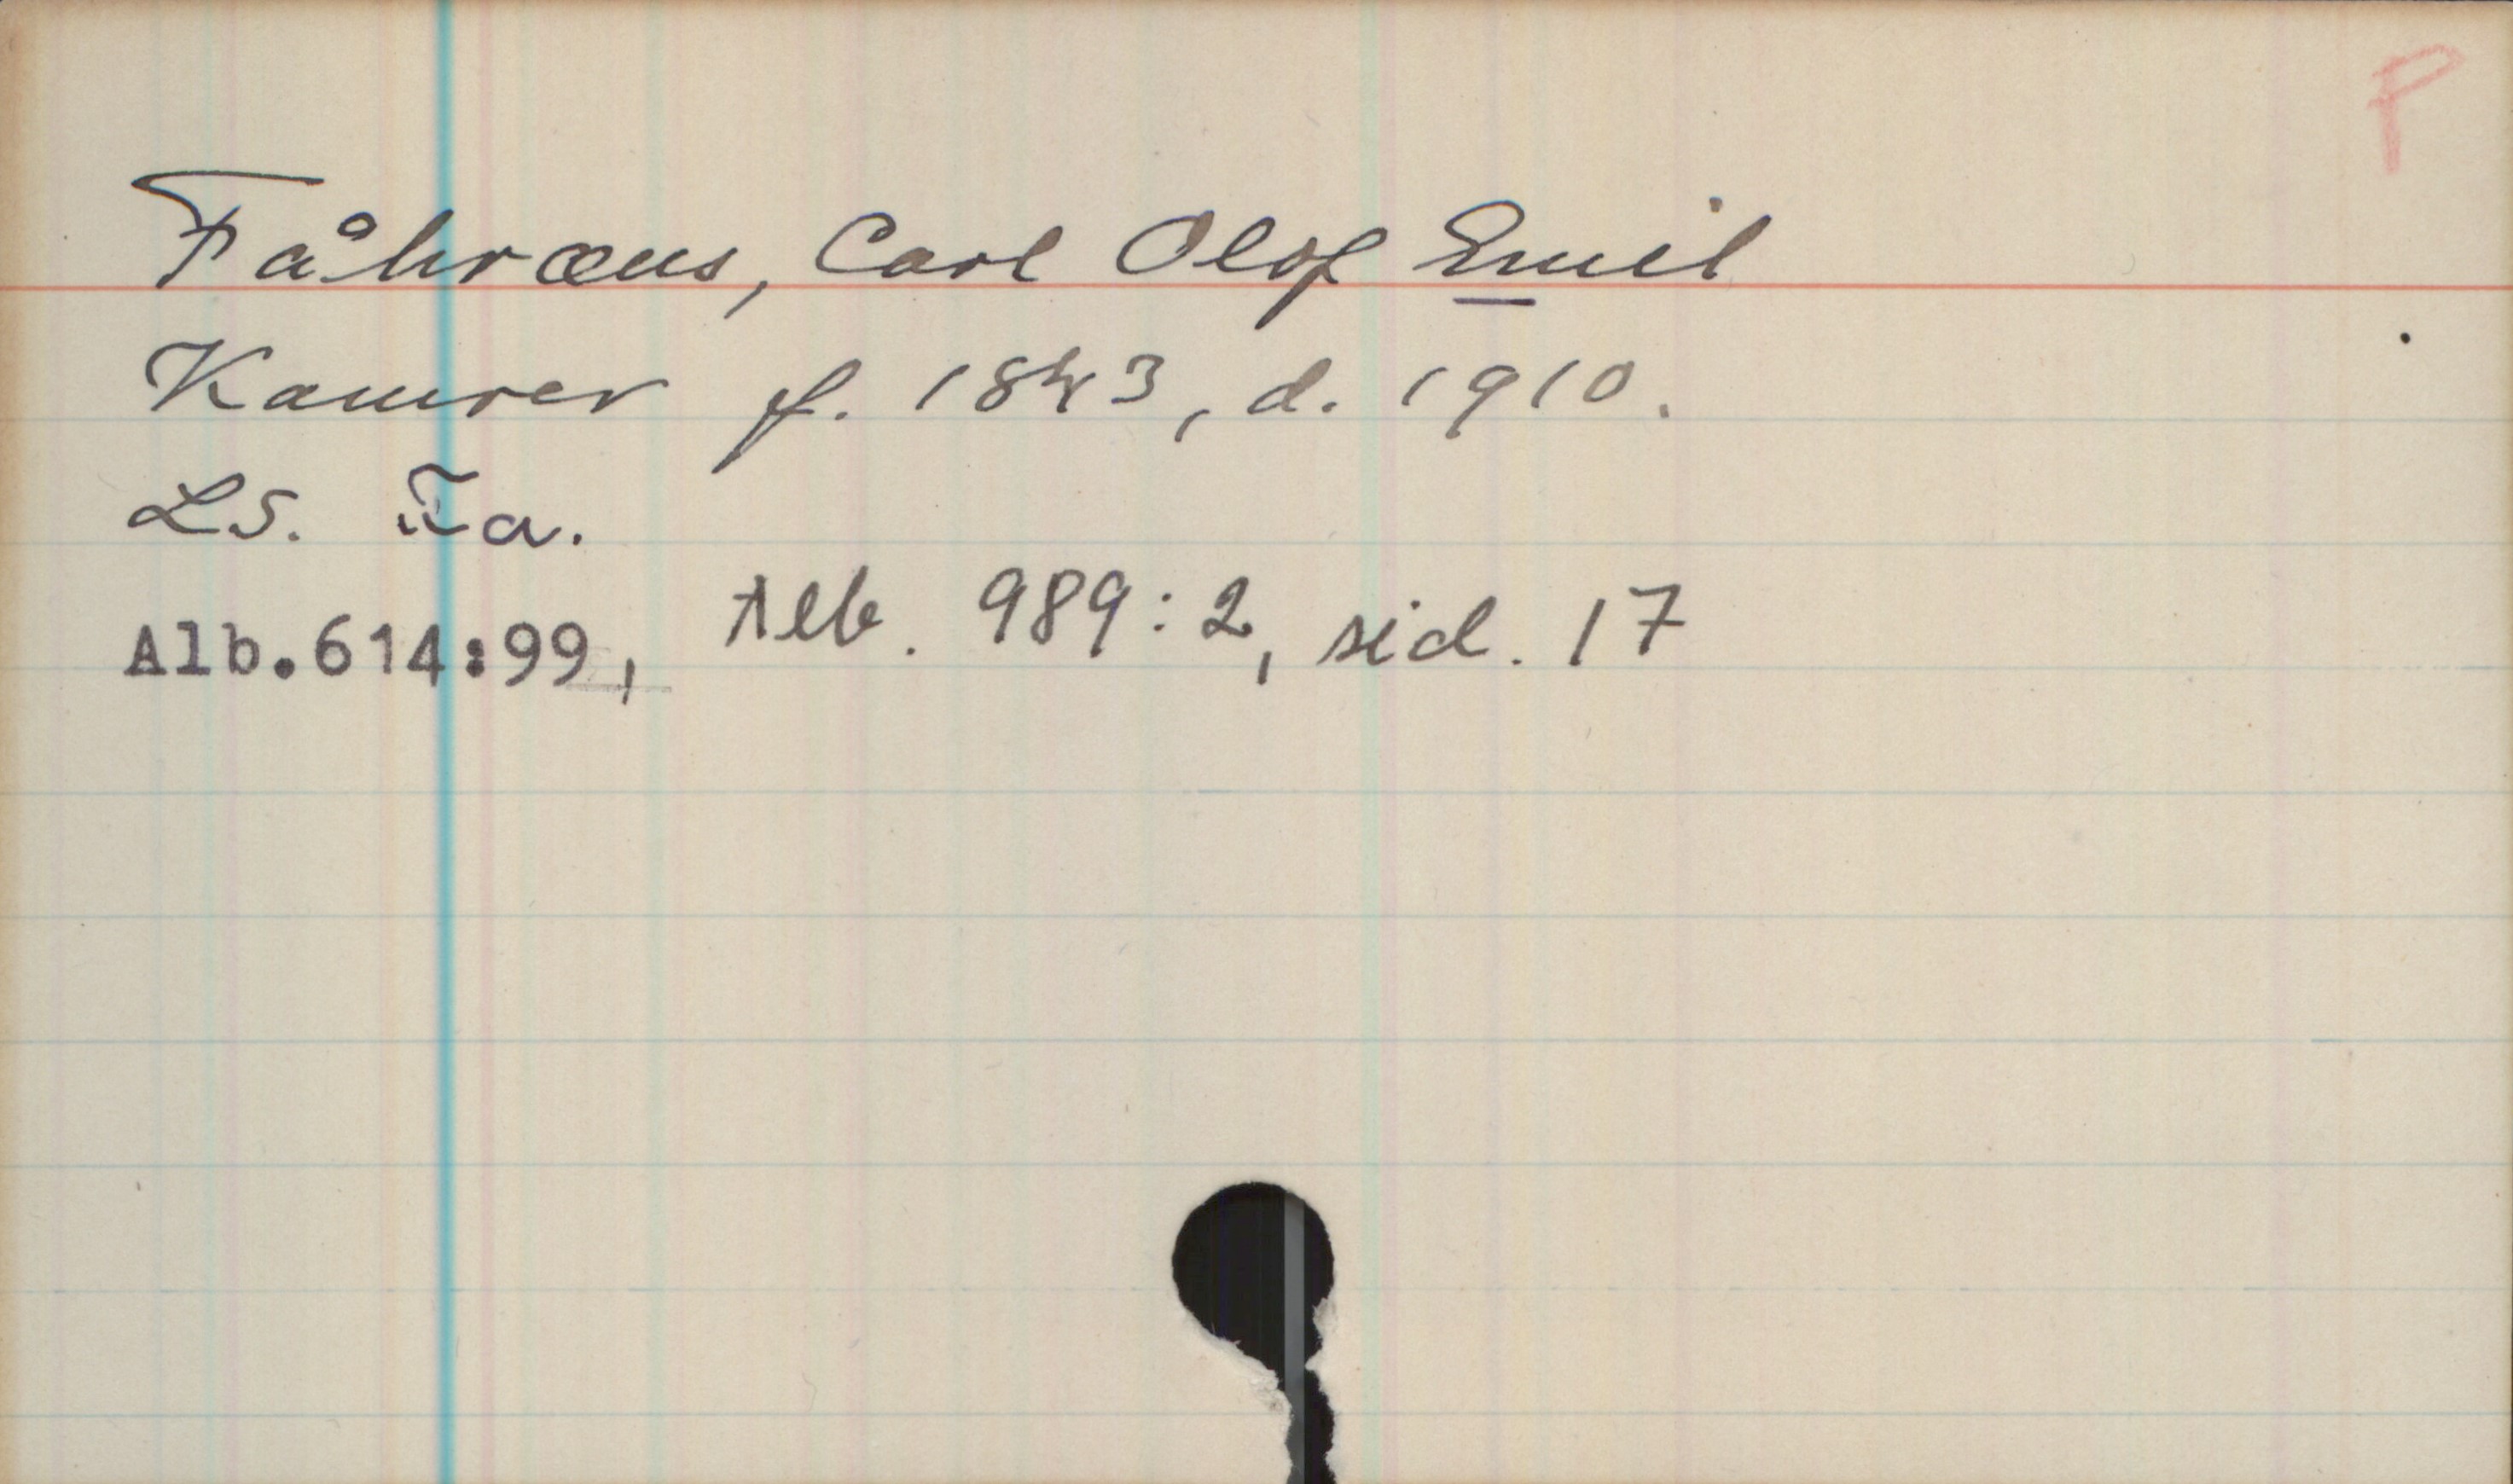 P
Fåhræus, Carl Olof Emil
Kamrer f. 1843, d. 1910.
LS. Ia.
Alb.614:99, Alb. 989:2, sid. 17